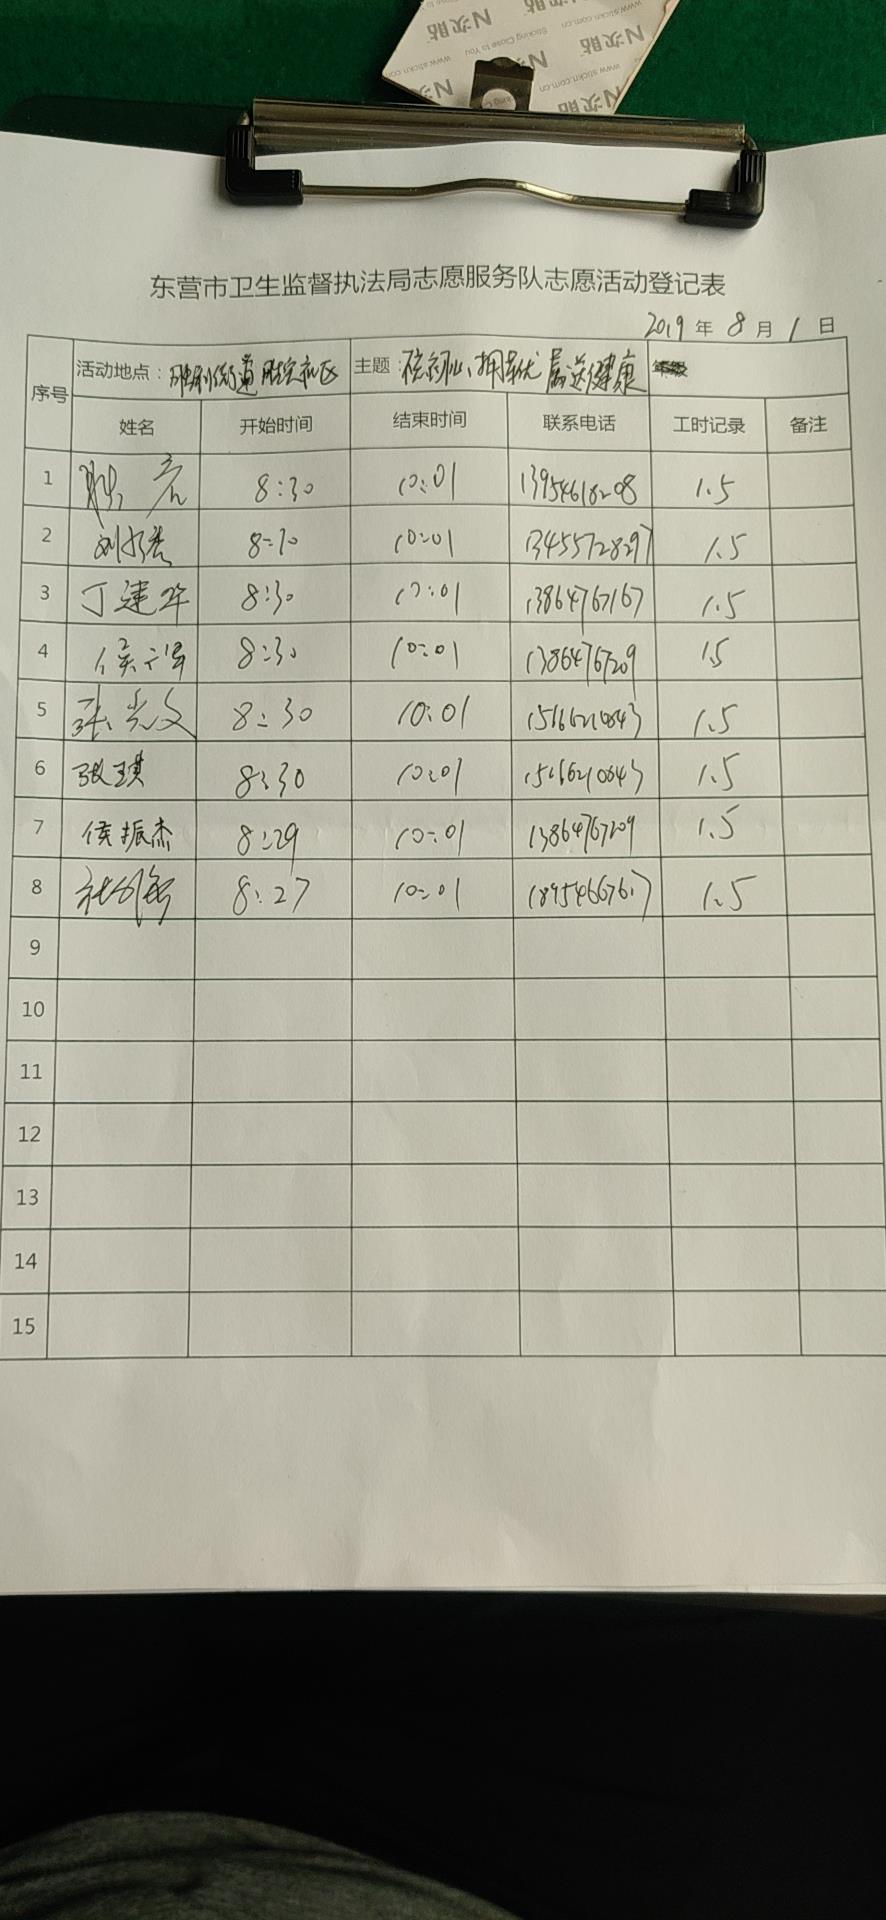 N次贴
Sticking Close to You
www.stickn.com.cn
东营市卫生监督执法局志愿服务队志愿活动登记表
2019 年 8 月 1 日
序号 活动地点：胜利街道 社区 主题： 拥军优属送健康
姓名 开始时间 结束时间 联系电话 工时记录 备注
1 8:30 10:01 13954618208 1.5
2 刘 10:01 13455728297 1.5
3 丁建华 8:30 10:01 13864767167 1.5
4 侯 8:30 10:01 13864767209 1.5
5 张光文 8:30 10:01 15166210843 1.5
6 张琪 8:30 10:01 1.5
7 侯振杰 8:29 10:01 13864767209 1.5
8 8:27 10:01 1.5
9
10
11
12
13
14
15